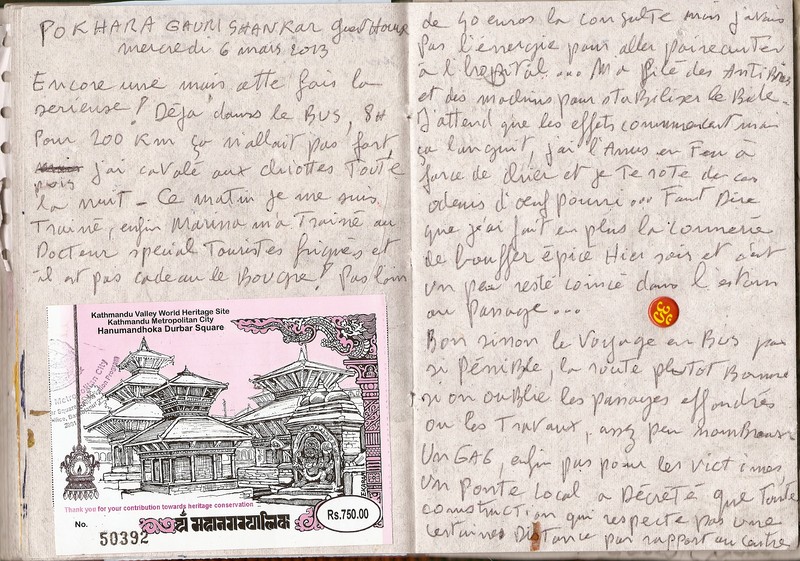 POKHARA GAURISHANKAR guest House
mercredi 6 mars 2013
Encore une mais cette fois la
serieuse! Déjà dans le BUS, 8H
Pour 200 Km ça n'allait pas fort,
puis j'ai cavalé aux chiottes Toute
la nuit - Ce matin je me suis
Trainé, enfin Marina m'a Trainé au
Docteur special Touristes friqués et
il est pas cadeau le Bougre! Pas loin
Kathmandu Valley World Heritage Site
Kathmandu Metropolitan City
Hanumandhoka Durbar Square
Thank you for your contribution towards heritage conservation
No. 50392
Rs.750.00
de 40 euros la consulte mais j'avais
pas l'énergie pour aller poireauter
à l'hopital... M'a filé des AntiBios
et des machins pour stabiliser le Bide.
J'attend que les effets commencent mais
ça languit, j'ai l'Anus en Feu à
force de chier et je Te rote de ces
odeurs d'oeuf pourri... Faut Dire
que j'ai fait en plus la connerie
de bouffer épicé Hier soir et c'est
un peu resté coincé dans l'estom
au passage...
Bon sinon le Voyage en Bus pas
si Pénible, la route plutot Bonne
si on oublie les passages effondrés
ou les Travaux, assez peu nombreux
Un GAG, enfin pas pour les victimes,
Un Ponte Local a Décrété que Toute
construction qui respecte pas une
certaines Distance par rapport au centre